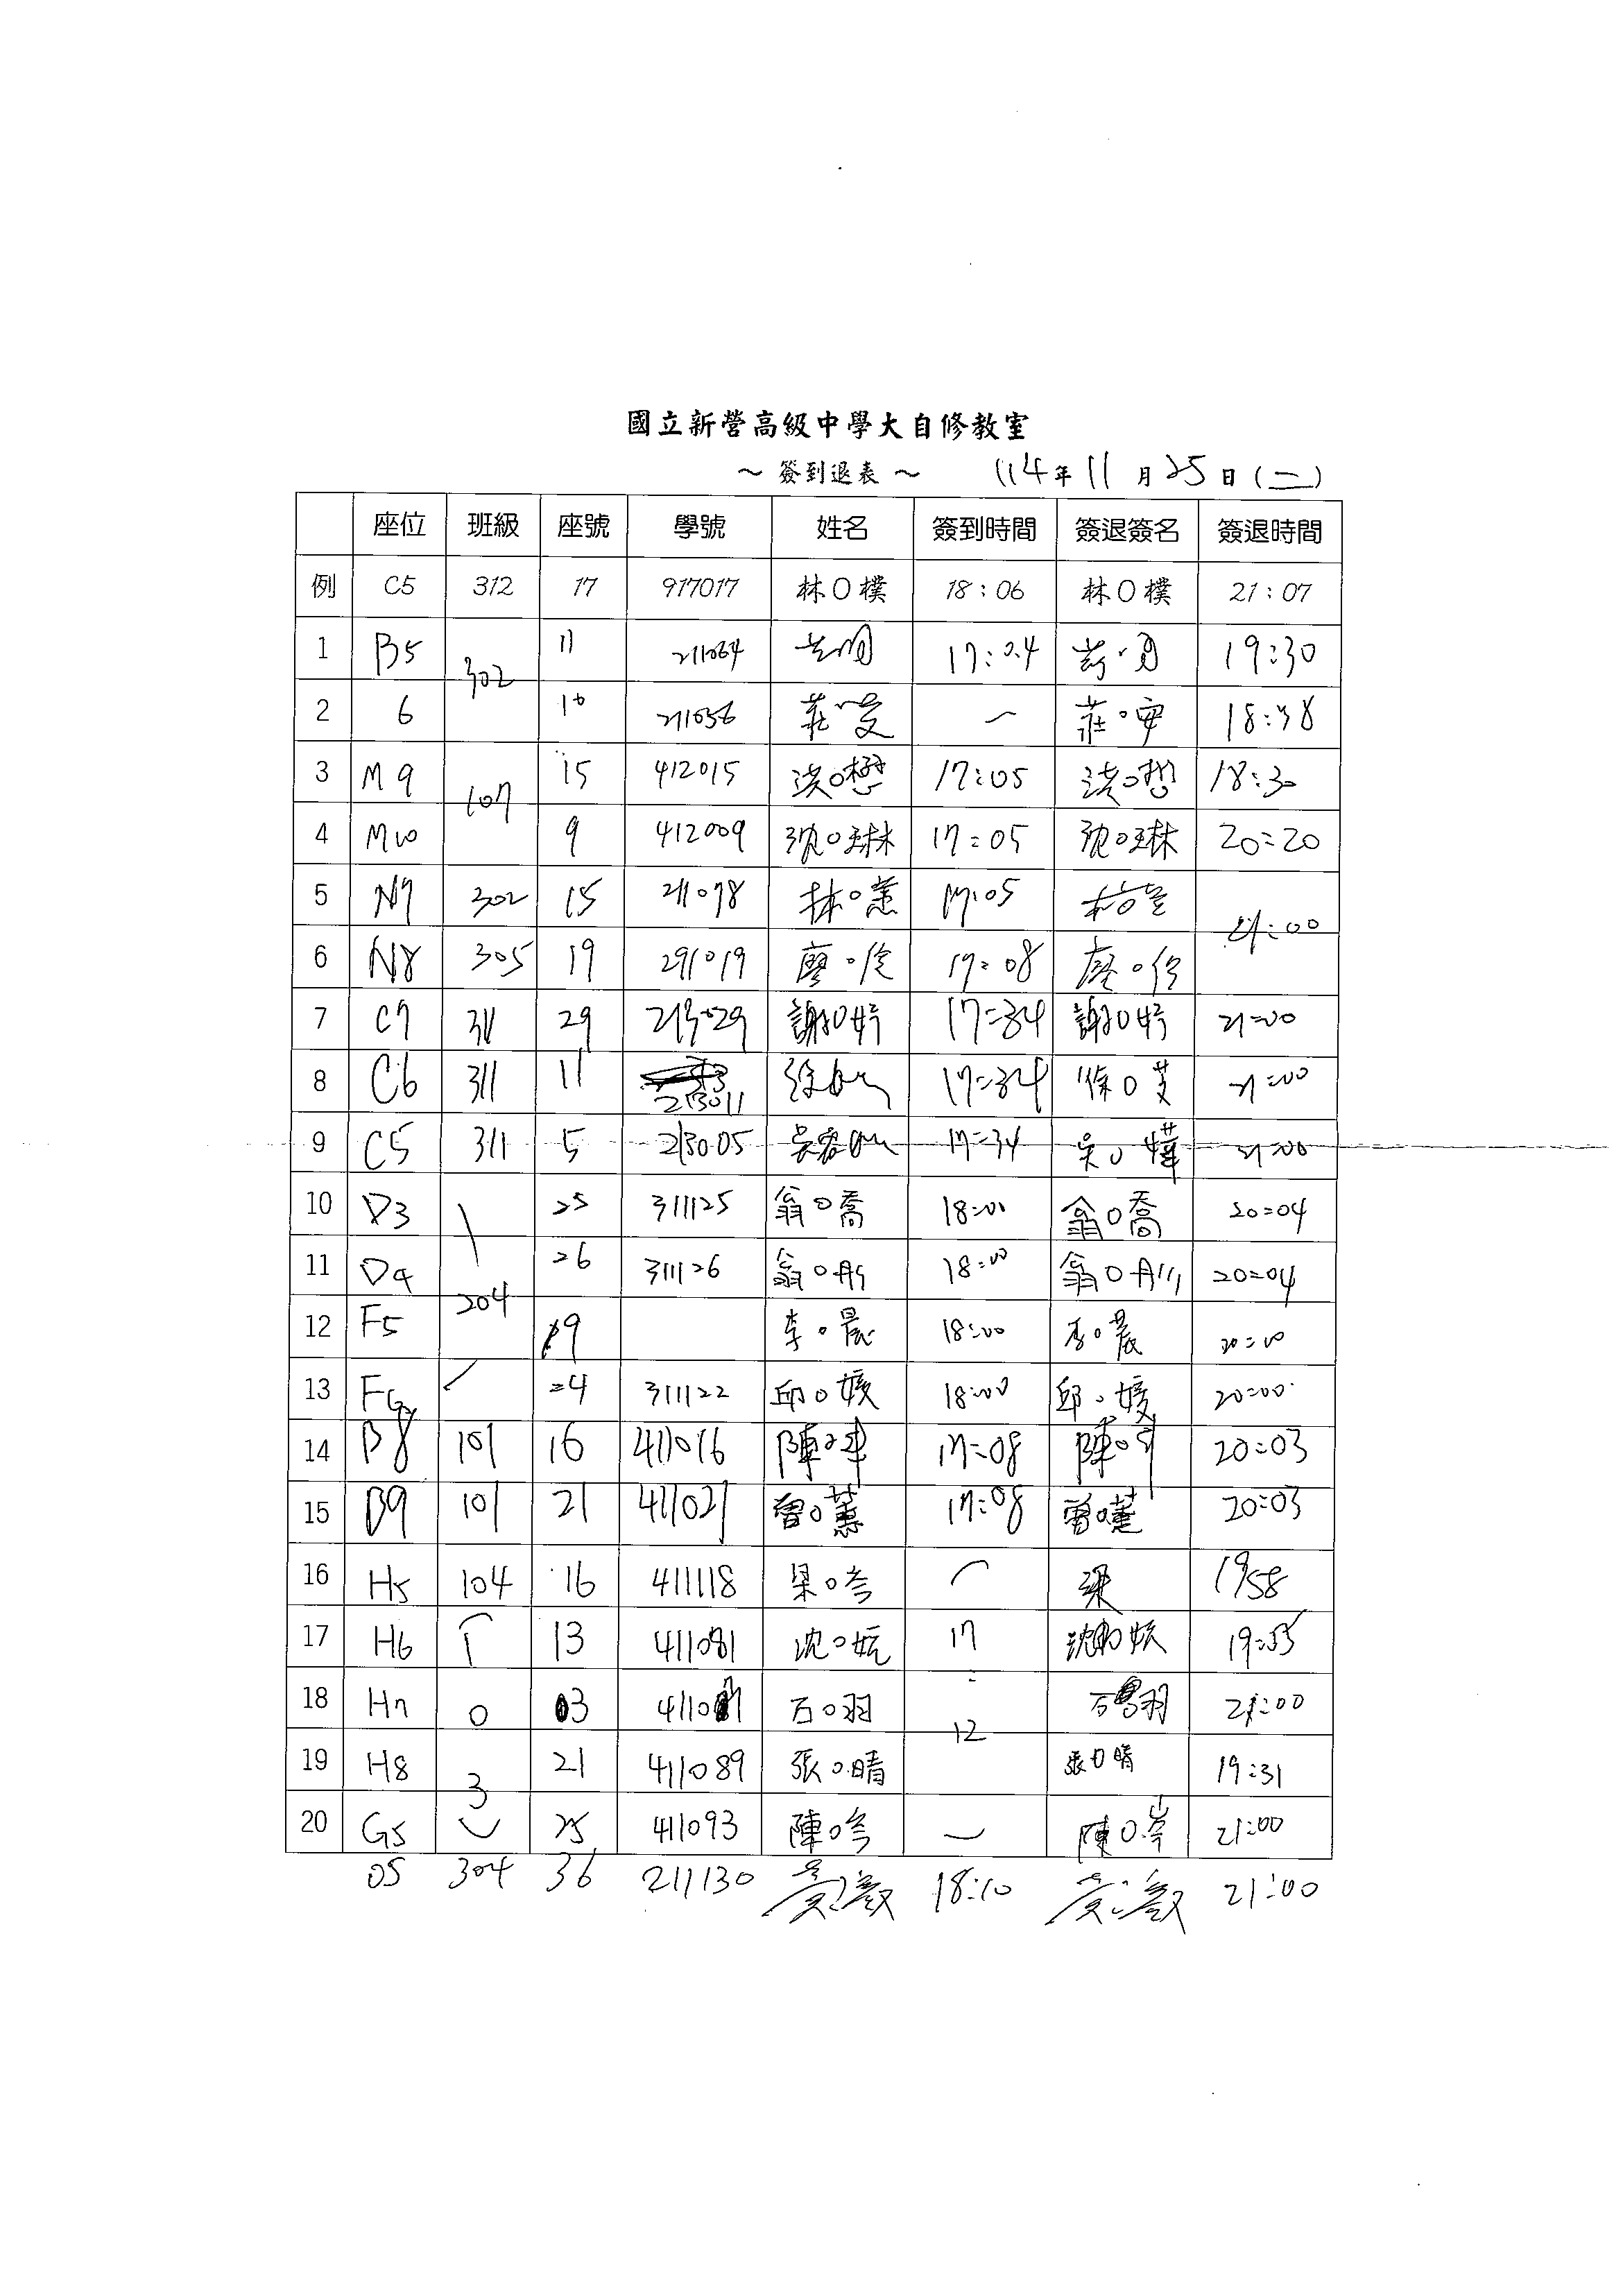 國立新營高級中學大自修教室
～ 簽到退表 ～ 114年 11 月 25 日 (二)
座位 班級 座號 學號 姓名 簽到時間 簽退簽名 簽退時間
例 C5 312 17 917017 林〇樸 18:06 林〇樸 21:07
1 B5 302 11 211064 17:24 19:30
2 6 10 211056 莊 莊 18:38
3 M9 107 15 412015 洪〇懋 17:05 洪〇 18:30
4 M10 9 412009 沈〇琳 17:05 沈〇琳 20:20
5 N9 302 15 211078 林〇蕙 17:05 21:00
6 N8 305 19 291019 廖〇伶 17:08 廖〇伶
7 C7 311 29 213029 謝〇妤 17:34 謝〇妤 21:00
8 C6 311 11 213011 徐 17:34 徐〇艾 21:00
9 C5 311 5 213005 吳 17:34 吳〇 21:00
10 D3 25 311125 翁〇喬 18:00 翁〇喬 20:04
11 D4 204 26 311126 翁〇 18:00 翁〇 20:04
12 F5 19 李〇晨 18:00 李〇晨 20:00
13 F6 24 311122 邱〇媛 18:00 邱〇媛 20:00
14 B8 101 16 411016 陳 17:08 陳 20:03
15 B9 101 21 411021 曾〇蕙 17:08 曾〇 20:03
16 H5 104 16 411118 梁〇 梁 19:58
17 H6 1 13 411081 沈〇妧 17 沈 19:55
18 H7 0 03 石〇羽 : 石 羽 21:00
19 H8 3 21 411089 張〇晴 12 張〇晴 19:31
20 G5 25 411093 陳〇岑 陳〇岑 21:00
D5 304 36 211130 18:10 21:00